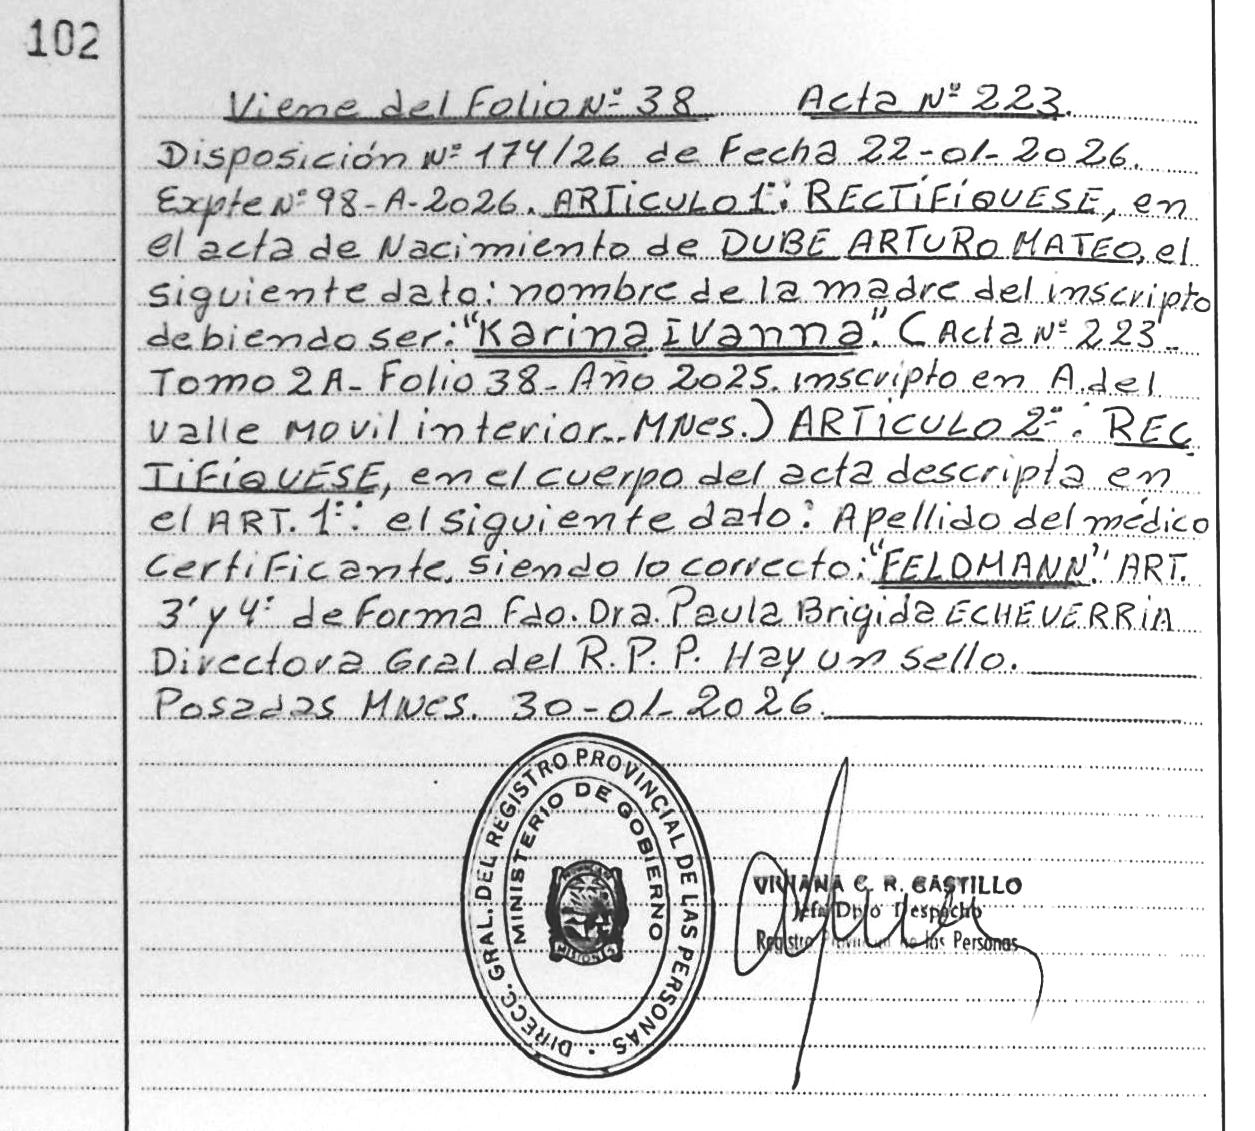 102
Viene del Folio Nº 38 Acta Nº 223.
Disposición Nº 174/26 de Fecha 22-01-2026.
Expte Nº 98-A-2026. ARTiCULO 1º: RECTiFíQUESE, en
el acta de Nacimiento de DUBE ARTURO MATEO, el
siguiente dato: nombre de la madre del inscripto
debiendo ser: "Karina Ivanna". (Acta Nº 223-
Tomo 2A- Folio 38- Año 2025. inscripto en A. del
valle Movil interior.. MNes.) ARTiCULO 2º: REC
TiFíQUESE, en el cuerpo del acta descripta en
el ART. 1º: el siguiente dato: Apellido del médico
Certificante, siendo lo correcto: "FELDMANN". ART.
3º y 4º de Forma Fdo. Dra. Paula Brigida ECHEVERRiA
Directora Gral del R.P.P. Hay un sello.
Posadas MNes. 30-01-2026.
DIRECC. GRAL. DEL REGISTRO PROVINCIAL DE LAS PERSONAS ·
MINISTERIO DE GOBIERNO
MISIONES
VIVIANA C. R. CASTILLO
Jefa Dpto Despacho
Registro Provincial de las Personas